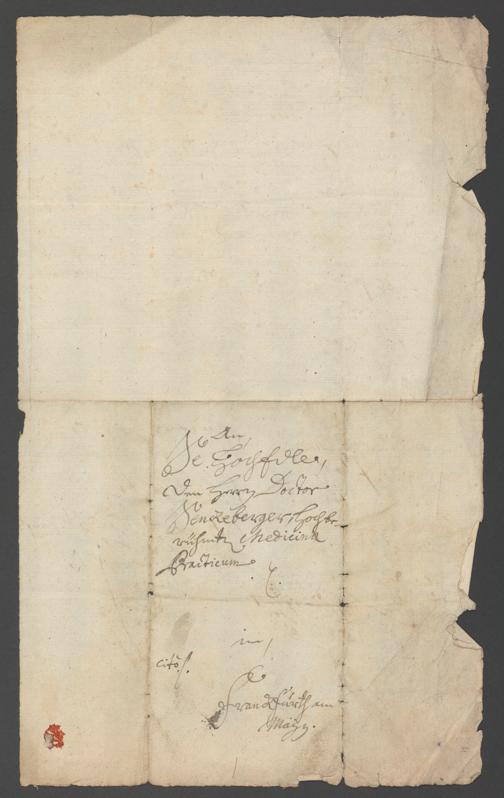 An,
Se. HochEdle,
Den Herrn Doctor
Senckeberger, Hochbe-
rühmten Medicinæ
Practicum
in,
cito!.
Franckfürth am
Mäyn.